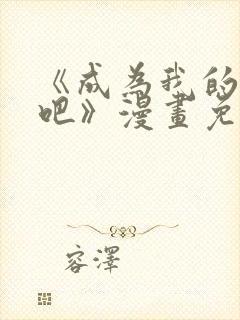 《成为我的
吧》漫畫免
容澤